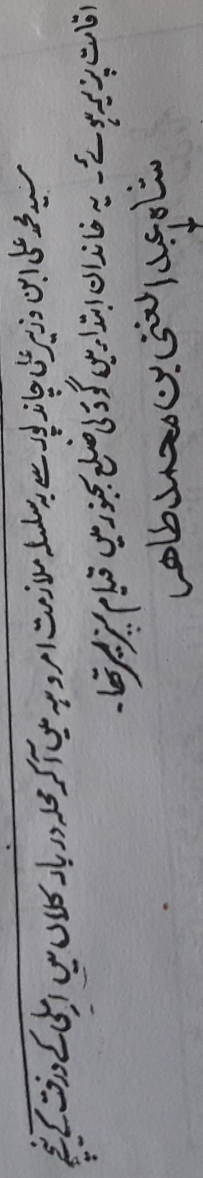 سید محمد علی ابن وزیر علی چاند پور سے بہ سلسلہ ملازمت امروہہ میں آکر محلہ دربار کلاں میں املی کے درخت کے نیچے
اقامت پزیر ہوئے۔ یہ خاندان ابتداء میں گودی ضلع بجنور میں قیام پزیر تھا۔
شاہ عبد الغنی بن محمد طاھر